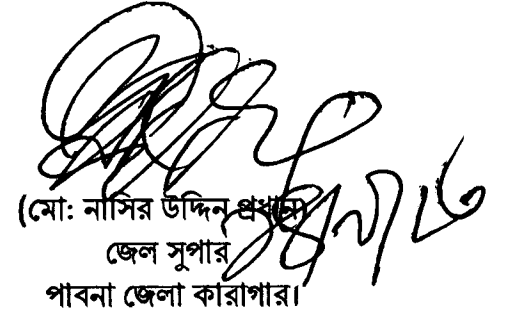 (মো: নাসির উদ্দিন প্রধান)
জেল সুপার
পাবনা জেলা কারাগার।